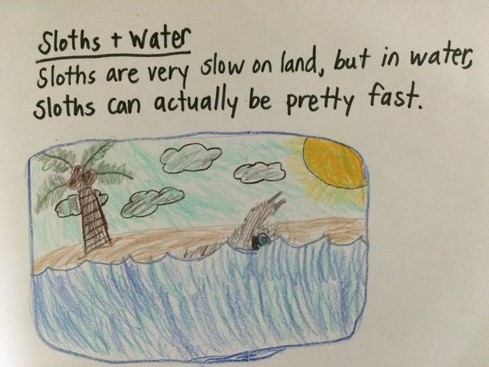 Sloths + Water
Sloths are very slow on land, but in water,
Sloths can actually be pretty fast.